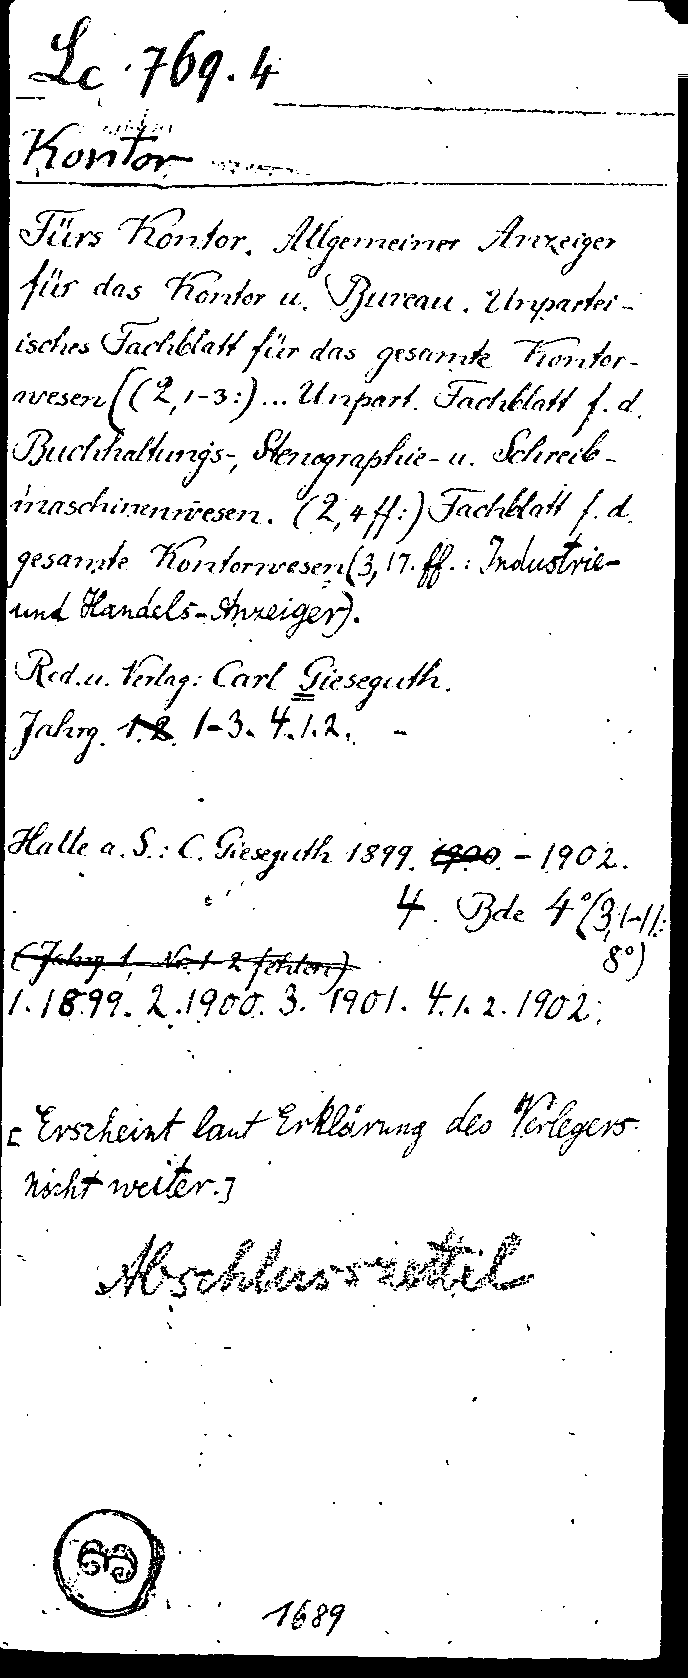 Lc 769.4
Kontor
Fürs Kontor. Allgemeiner Anzeiger
für das Kontor u. Bureau. Unpartei-
isches Fachblatt für das gesamte Kontor-
wesen ((2,1-3:) ... Unpart. Fachblatt f. d.
Buchhaltungs-, Stenographie- u. Schreib-
maschinenwesen. (2,4 ff:) Fachblatt f. d.
gesamte Kontorwesen (3,17. ff.: Industrie-
und Handels-Anzeiger).
Red. u. Verlag: Carl Gieseguth.
Jahrg. 1.2. 1-3. 4.1.2. -
Halle a. S.: C. Gieseguth 1899. 1900. - 1902.
4. Bde 4° (3,1-11:
8°)
(Jahrg. 1, No. 1-2 fehlen)
1. 1899. 2. 1900. 3. 1901. 4.1.2. 1902.
[Erscheint laut Erklärung des Verlegers
nicht weiter.]
Abschlusszettel
1689